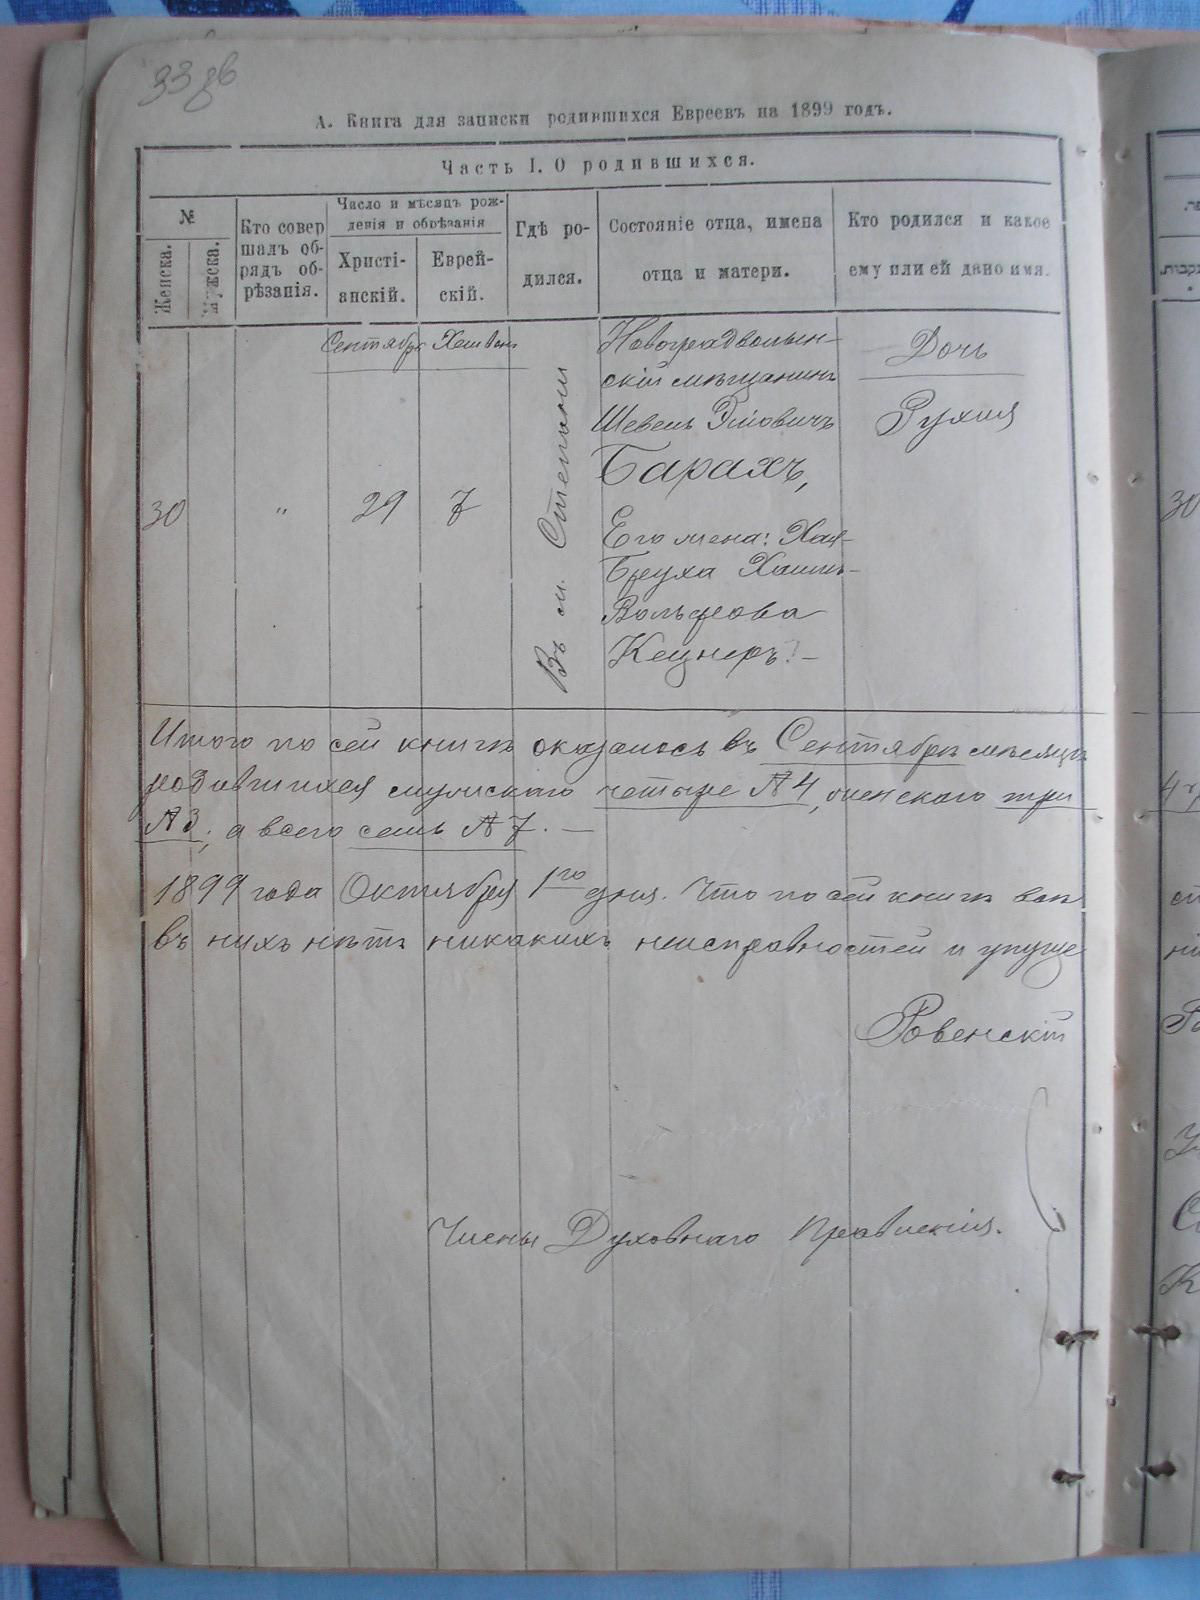 33 зв
А. Книга для записки родившихся Евреевъ на 1899 годъ.
Часть I. О родившихся.
№
Женска.
Мужска.
Кто совер
шалъ об-
рядъ об-
рѣзанія.
Число и мѣсяцъ рож-
денія и обрѣзанія
Христі-
анскій.
Еврей-
скій.
Гдѣ ро-
дился.
Состояніе отца, имена
отца и матери.
Кто родился и какое
ему или ей дано имя.
30
"
Сентябрь
29
Хешванъ
7
Въ м. Степани
Новоградволын-
скій мѣщанинъ
Шевель
Барахъ,
Его жена: Хая-
Бруха Хаимъ-
Вольфова
Кецнеръ. –
Дочь
Рухля
Итого по сей книгѣ оказалось въ Сентябрѣ мѣсяцѣ
родившихся мужскаго четыре № 4, женскаго три
№ 3, а всего семь № 7. –
1899 года Октября 1го дня. Что по сей книгѣ
въ нихъ нѣтъ никакихъ неисправностей и упуще
Ровенскій
Члены Духовнаго Правленія.
30